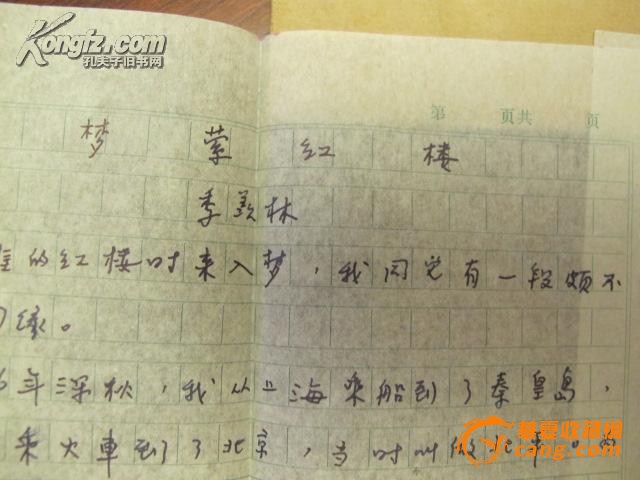 Kongfz.com
孔夫子旧书网
第 页共 页
梦萦红楼
季羡林
的红楼时来入梦，我同它有一段颇不
缘。
6年深秋，我从上海乘船到了秦皇岛，
乘火車到了北京，当时叫做北平。
华夏收藏网
cang.com